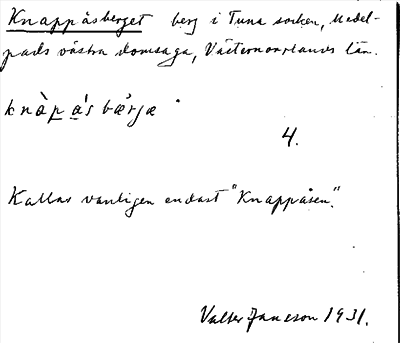 Knappåsberget berg i Tuna socken, Medel-
pads västra domsaga, Västernorrlands län.
knàpa̍s bær̍jæ
4.
Kallas vanligen endast "Knappåsen".
Valter Jansson 1931.